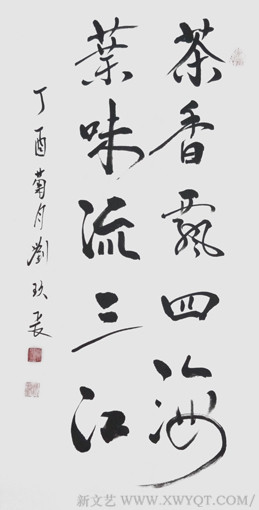 茶香飄四海
葉味流三江
丁酉菊月劉玖長
新文艺 WWW.XWYQT.COM/